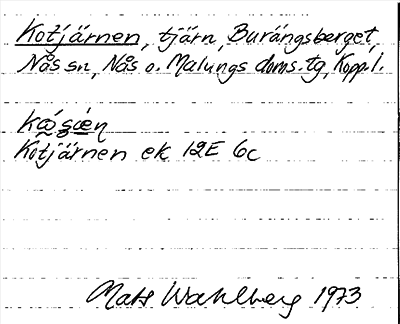 Kotjärnen, tjärn, Burängsberget,
Nås sn, Nås o. Malungs doms.tg, Kopp.l.
Kotjärnen ek 12E 6c
Mats Wahlberg 1973